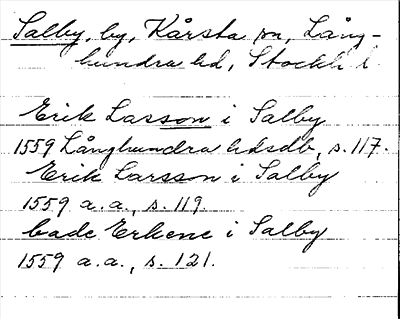 Salby, by, Kårsta sn, Lång-
hundra hd, Stockh. l.
Erik Lasson i Salby
1559 Långhundra hdsdb, s. 117.
Erik Larsson i Salby
1559 a.a., s. 119.
bade Erkene i Salby
1559 a.a., s. 121.